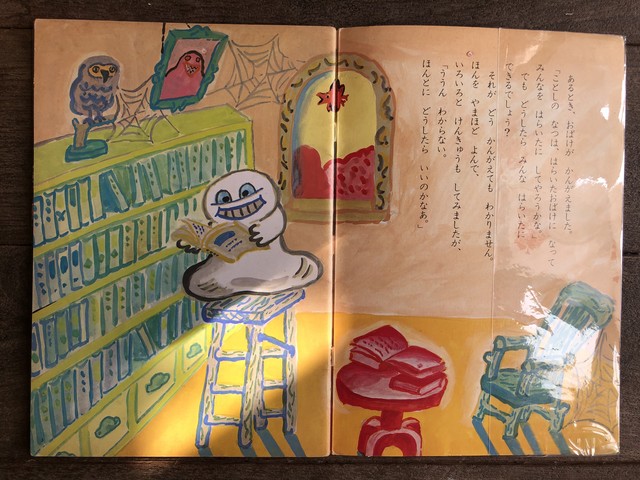 あるとき、おばけが かんがえました。
「ことしの なつは、はらいたおばけに なって
みんなを はらいたに してやろうかな。
でも どうしたら みんな はらいたに
できるでしょう？
それが どう かんがえても わかりません。
ほんを やまほど よんで、
いろいろと けんきゅうも してみましたが、
「ううん わからない。
ほんとに どうしたら いいのかなあ。」